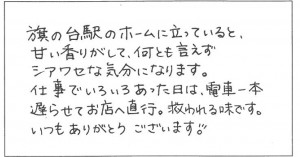 旗の台駅のホームに立っていると、
甘い香りがして、何とも言えず
シアワセな気分になります。
仕事でいろいろあった日は、電車一本
遅らせてお店へ直行。救われる味です。
いつもありがとうございます!!